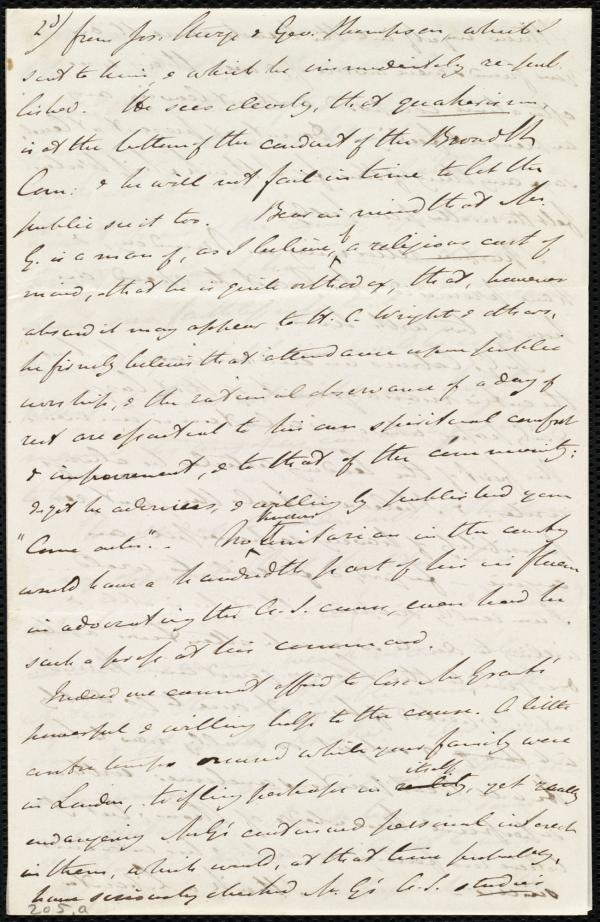 2d/ from Jos. Sturge & Geo. Thompson, which I
sent to him, & which he immediately re-pub
lished. He sees clearly, that quakerism,
is at the bottom of the conduct of the Broad St
Com: & he will not fail in time to let the
public see it too. Bear in mind that Mr.
G. is a man of, as I believe, a religious cast of
mind, that he is quite orthodox, that, however
absurd it may appear to H. C. Wright & others,
he firmly believes that attendance upon public
worship, & the rational observance of a day of
rest are essential to his own spiritual comfort
& improvement, & to that of the community:
& yet he advises, & willingly published your
"Come outer".. No Unitarian in the country
would have a hundredth part of his influence
in advocating the A.S. cause, even had he
such a press at his command.
Indeed we cannot afford to lose Mr Grant's
powerful & willing help to the cause. A little
contretemps occurred while your family were
in London, trifling perhaps in itself, yet really
endangering Mr G's continued personal interest
in them, which would, at that time probably,
have seriously checked Mr G's A.S. studies
205.a